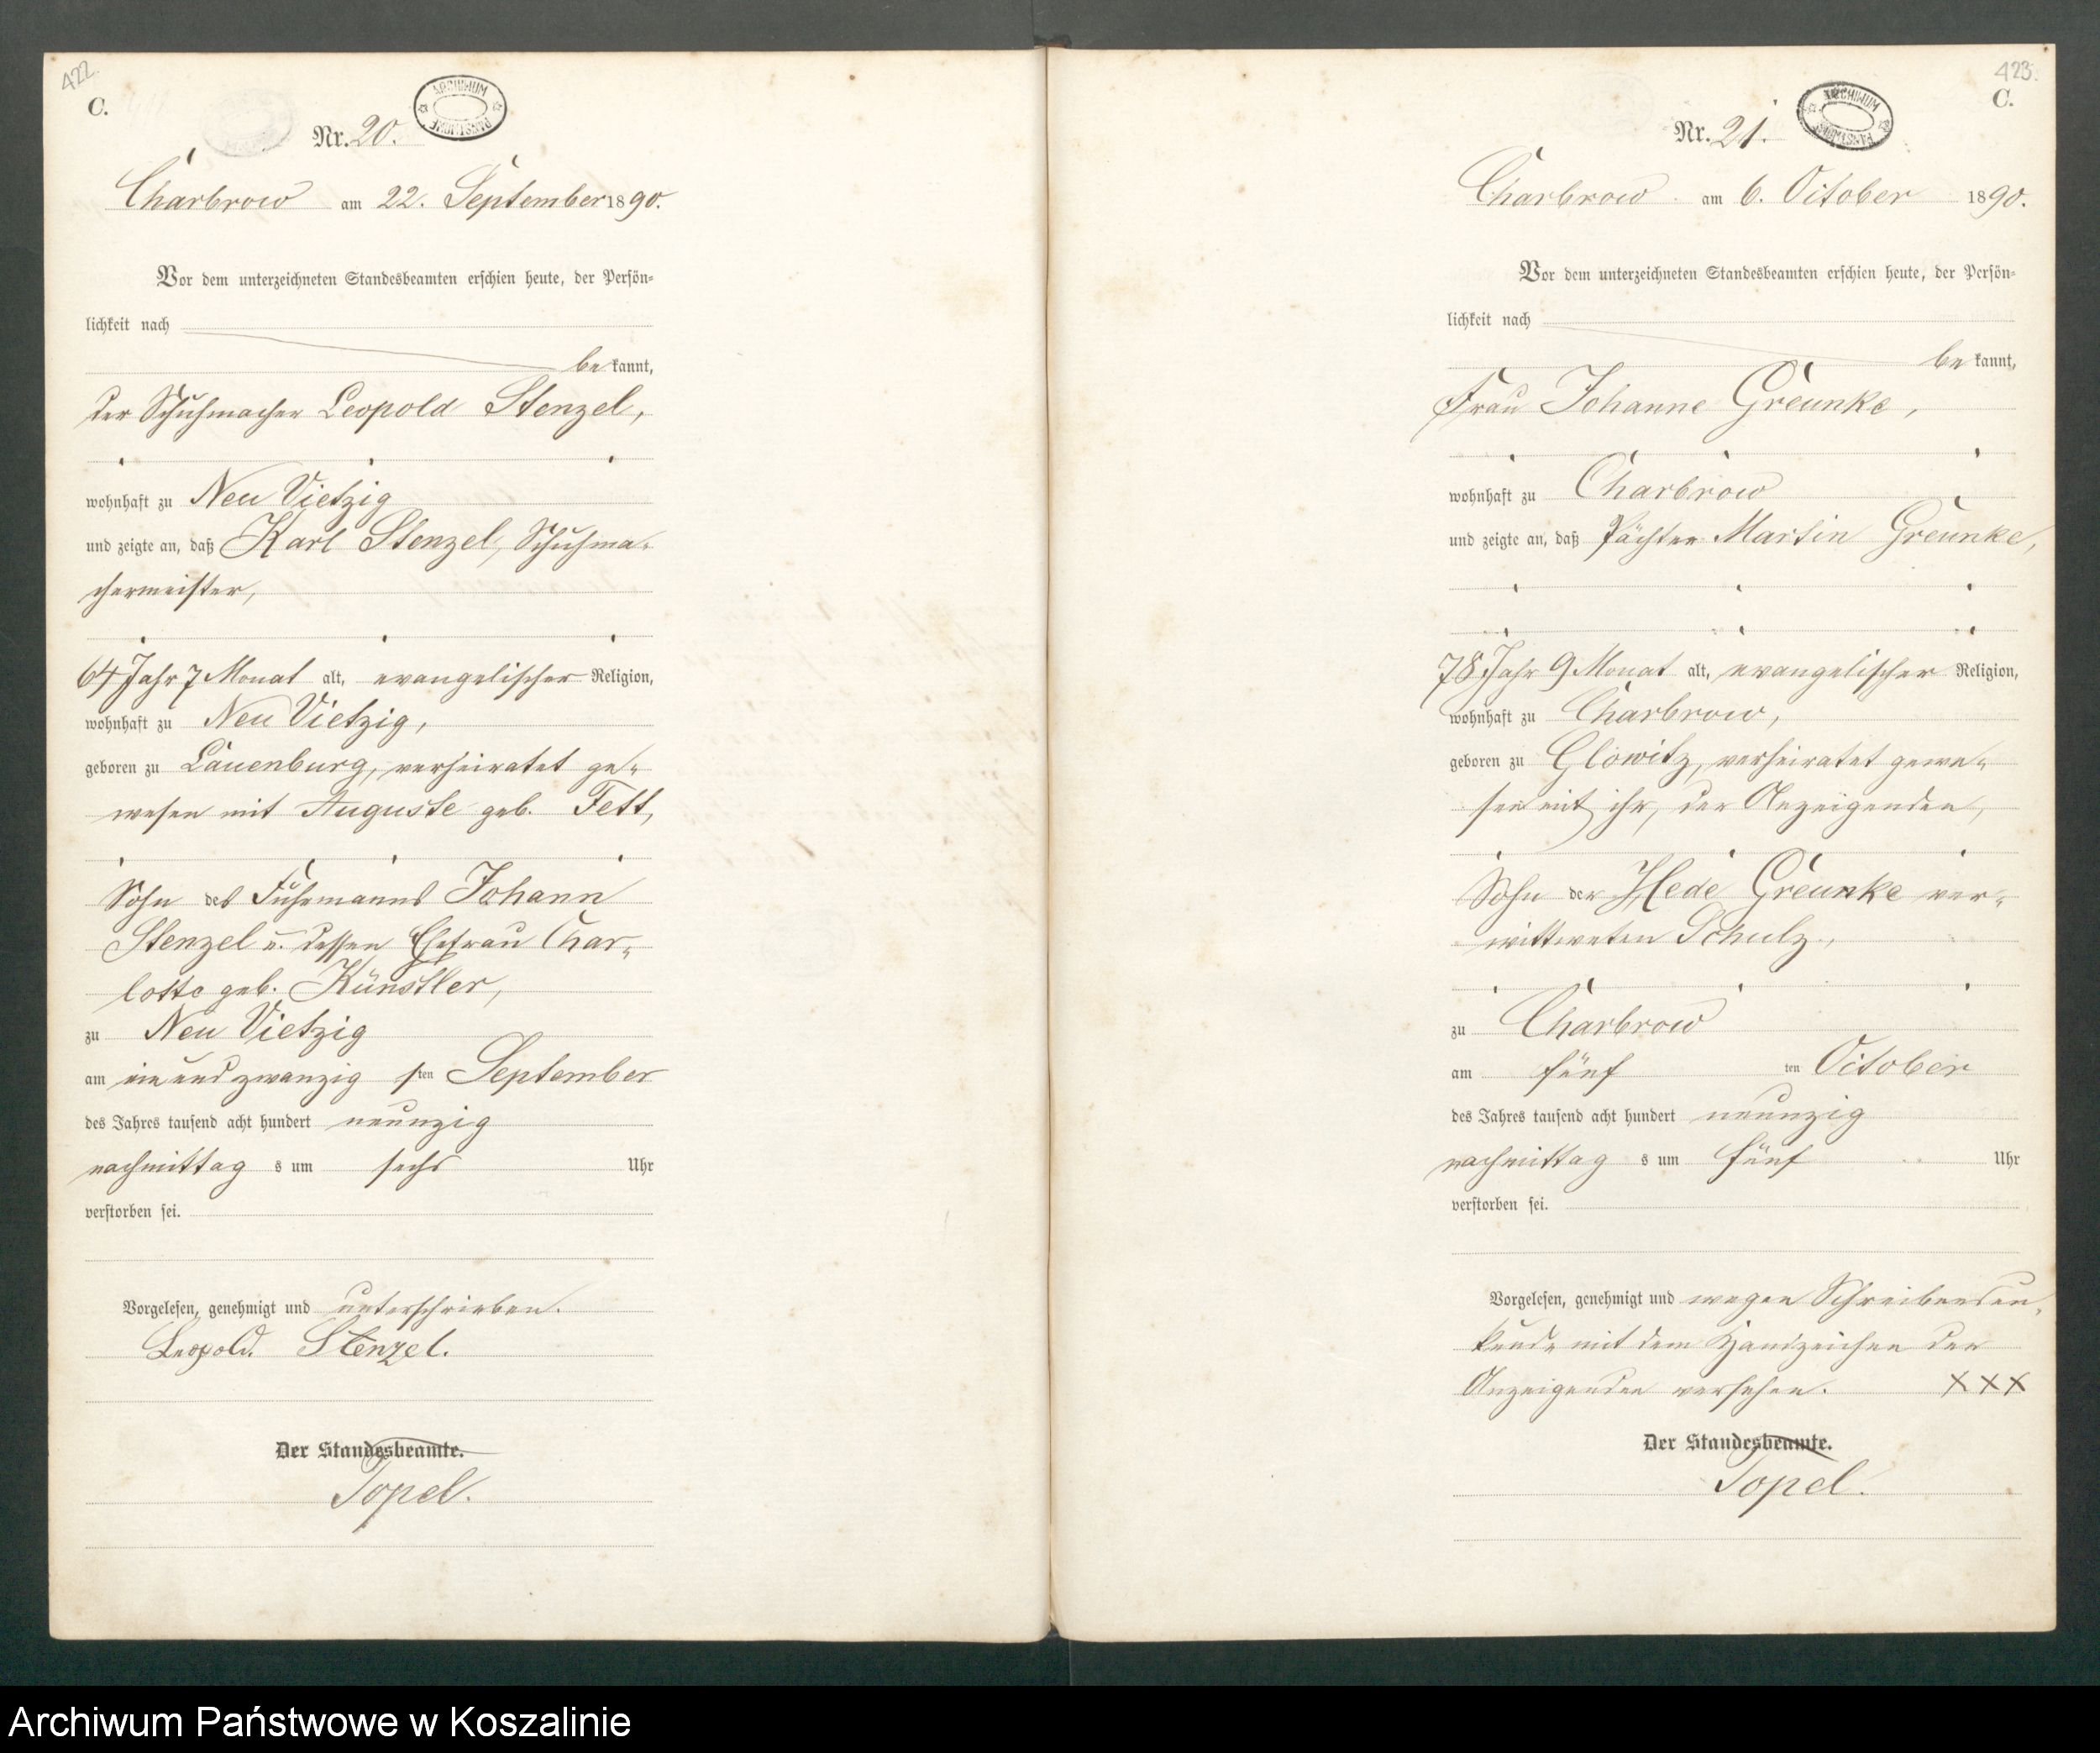 422.
C.
ARCHIWUM PAŃSTWOWE
Nr. 20.
Charbrow am 22. September 1890.
Vor dem unterzeichneten Standesbeamten erschien heute, der Persön-
lichkeit nach
be kannt,
der Schuhmacher Leopold Stenzel,
wohnhaft zu Neu Vietzig
und zeigte an, daß Karl Stenzel, Schuhma-
chermeister,
64 Jahr 7 Monat alt, evangelischer Religion,
wohnhaft zu Neu Vietzig,
geboren zu Lauenburg, verheiratet ge-
wesen mit Auguste geb. Fett,
Sohn des Fuhrmanns Johann
Stenzel u. dessen Ehefrau Char-
lotte geb. Künstler,
zu Neu Vietzig
am ein und zwanzig sten September
des Jahres tausend acht hundert neunzig
nachmittag s um sechs Uhr
verstorben sei.
Vorgelesen, genehmigt und unterschrieben.
Leopold. Stenzel.
Der Standesbeamte.
Topel.
423.
C.
ARCHIWUM PAŃSTWOWE
Nr. 21.
Charbrow am 6. October 1890.
Vor dem unterzeichneten Standesbeamten erschien heute, der Persön-
lichkeit nach
be kannt,
Frau Johanne Greunke,
wohnhaft zu Charbrow
und zeigte an, daß Pächter Martin Greunke,
78 Jahr 9 Monat alt, evangelischer Religion,
wohnhaft zu Charbrow,
geboren zu Glowitz, verheiratet gewe-
sen mit ihr, der Anzeigenden,
Sohn der Hede Greunke ver-
wittweten Schulz,
zu Charbrow
am fünf ten October
des Jahres tausend acht hundert neunzig
nachmittag s um fünf Uhr
verstorben sei.
Vorgelesen, genehmigt und wegen Schreibensun-
kunde mit dem Handzeichen der
Anzeigenden versehen. XXX
Der Standesbeamte.
Topel.
Archiwum Państwowe w Koszalinie